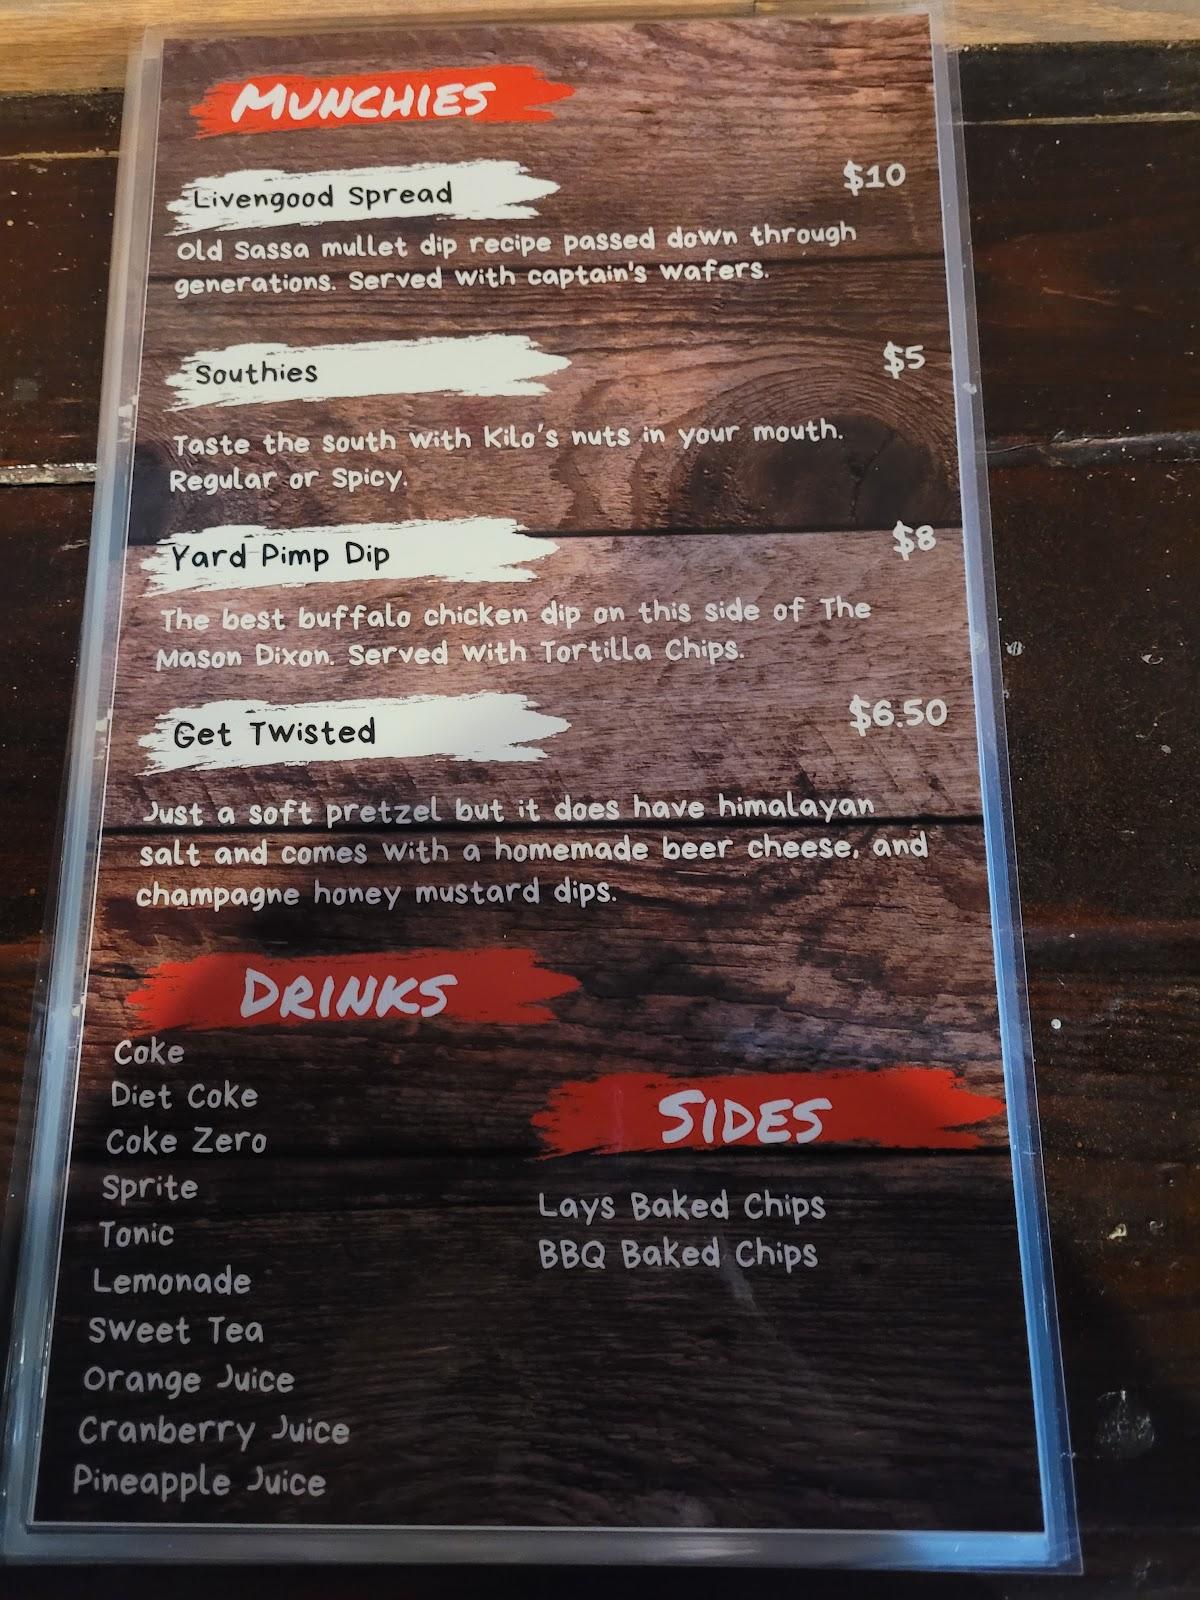 MUNCHIES
Livengood Spread $10
Old Sassa mullet dip recipe passed down through
generations. Served with captain's wafers.
Southies $5
Taste the south with Kilo's nuts in your mouth.
Regular or Spicy.
Yard Pimp Dip $8
The best buffalo chicken dip on this side of The
Mason Dixon. Served with Tortilla Chips.
Get Twisted $6.50
Just a soft pretzel but it does have himalayan
salt and comes with a homemade beer cheese, and
champagne honey mustard dips.
DRINKS
Coke
Diet Coke
Coke Zero
Sprite
Tonic
Lemonade
Sweet Tea
Orange Juice
Cranberry Juice
Pineapple Juice
SIDES
Lays Baked Chips
BBQ Baked Chips